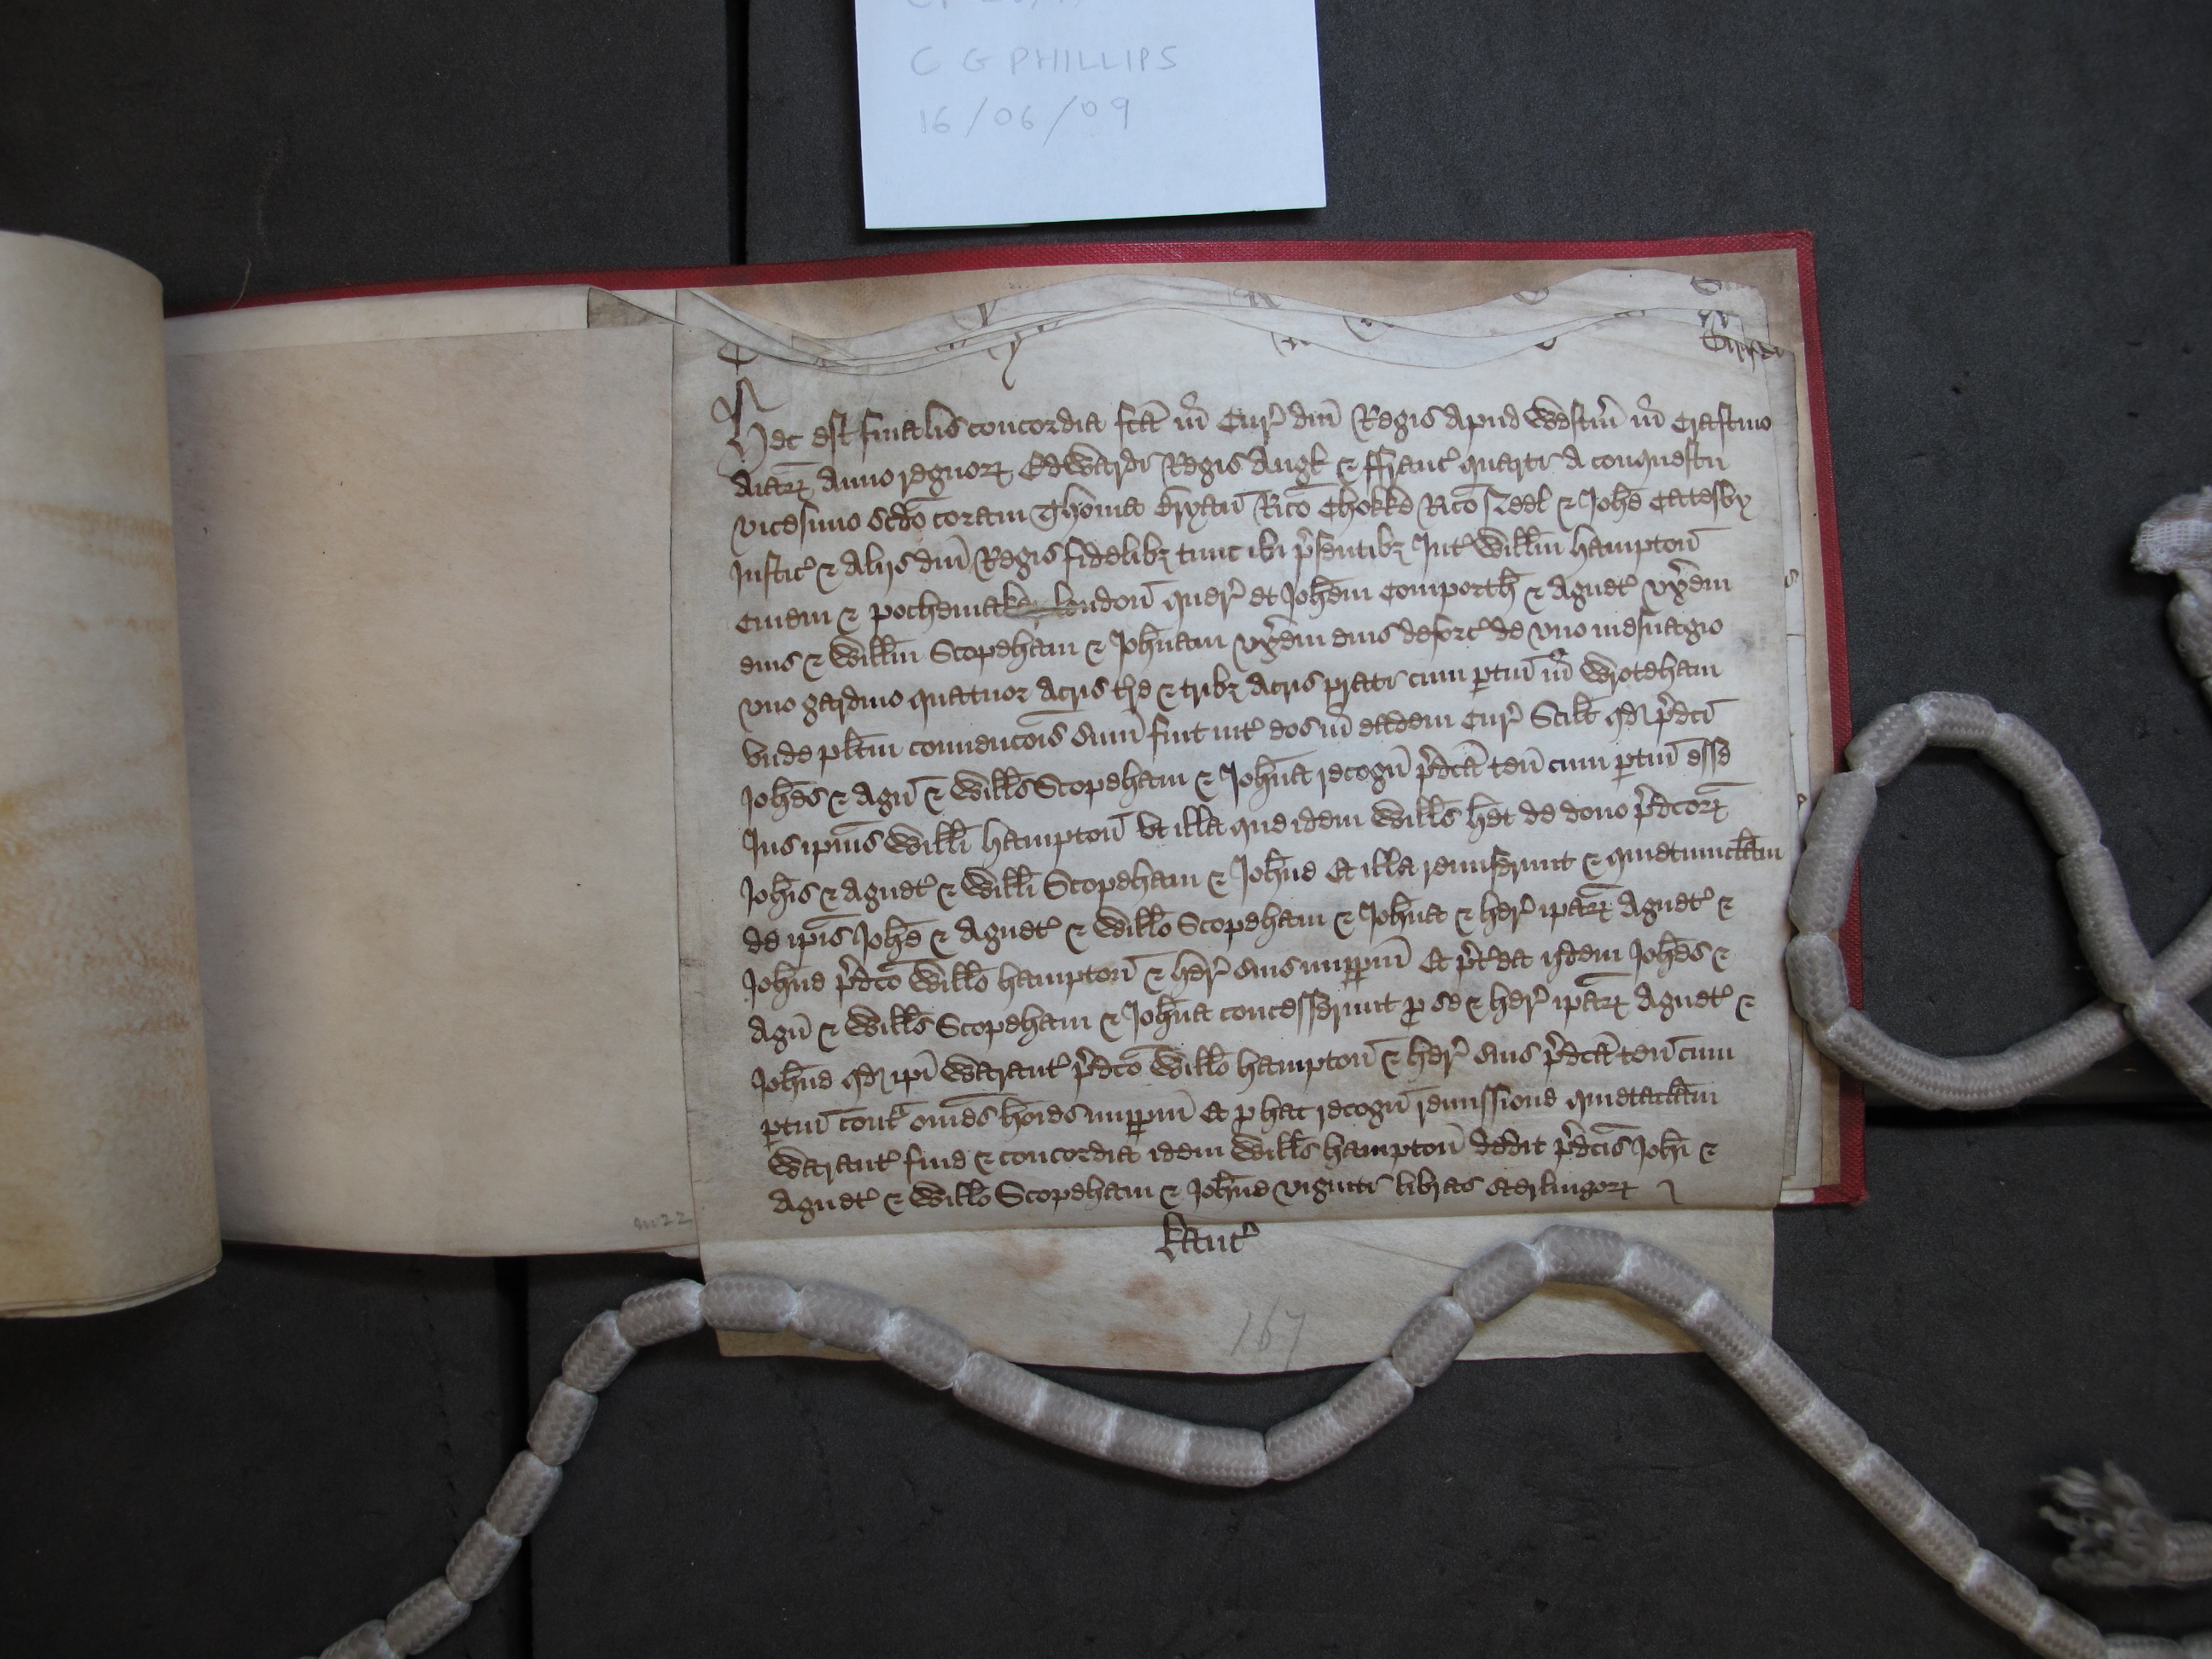 C G PHILLIPS
16/06/09
Hec est finalis concordia fcā in Cur' dnī Regis apud Westm̄ in Crastino
Aīarꝝ Anno regnorꝝ Edwardi Regis Angł ⁊ ffranc' quarti a conquestu
vicesimo scdō coram Thoma Bryan̄ Rico Chokke Rico Neel ⁊ Johē Catesby
Justic' ⁊ aliis dnī Regis fidelibꝫ tunc ibi p'sentibꝫ Int' Willm̄ Hampton̄
Ciuem ⁊ london̄ quer' et Johēm Comporth̄ ⁊ Agnet' vx'em
eius ⁊ Willm̄ Scopeham ⁊ Joh̄nam vx'em eius deforc' de vno mesuagio
vno gardino quatuor acris t're ⁊ tribꝫ acris prati cum ꝑtin̄ in Wroteham
Vnde plitm̄ conuencōis sum̄ fuit int' eos in eadem Cur' Scilt qd p'dcī
Johēs ⁊ Agn̄ ⁊ Wills Scopeham ⁊ Joh̄na recogn̄ p'dcā ten̄ cum ꝑtin̄ esse
Jus ip̄ius Willi Hampton̄ Vt illa que idem Wills h̄et de dono p'dcorꝝ
Joh̄is ⁊ Agnet' ⁊ Willi Scopeham ⁊ Joh̄ne Et illa remiserunt ⁊ quietumclam̄
de ip̄is Joh̄e ⁊ Agnet' ⁊ Willo Scopeham ⁊ Joh̄na ⁊ her' ip̄arꝝ Agnet' ⁊
Joh̄ne p'dco Willo Hampton̄ ⁊ her' suis imꝑpm̄ Et p't'ea ijdem Joh̄es ⁊
Agn̄ ⁊ Wills Scopeham ⁊ Joh̄na concesserunt ꝑ se ⁊ her' ip̄arꝝ Agnet' ⁊
Joh̄ne qd ip̄i Warant' p'dco Willo Hampton̄ ⁊ her' suis p'dcā ten̄ cum
ꝑtin̄ cont' om̄es hoīes imꝑpm̄ Et ꝑ hac recogn̄ remissione quietaclam̄
Warant' fine ⁊ concordia idem Wills Hampton̄ dedit p'dcīs Joh̄i ⁊
Agnet' ⁊ Willo Scopeham ⁊ Joh̄ne viginti libras sterlingorꝝ
Kanc'
m 22
167